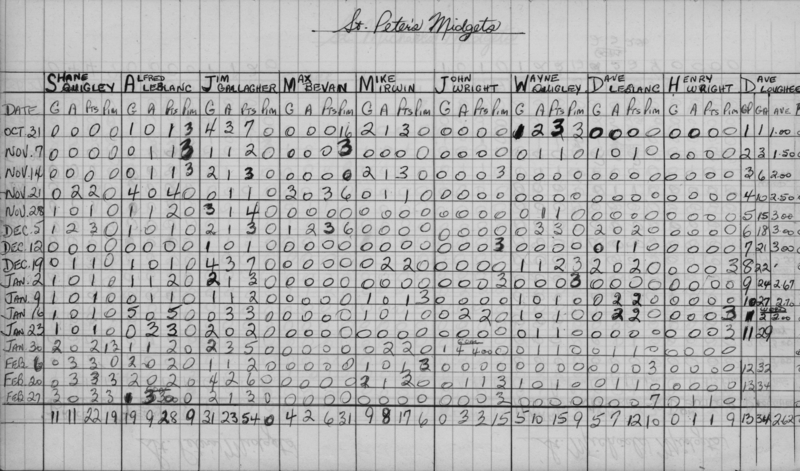 St. Peter's Midgets
SHANE QUIGLEY ALFRED LEBLANC JIM GALLAGHER MAX BEVAN MIKE IRWIN JOHN WRIGHT WAYNE QUIGLEY DAVE LEBLANC HENRY WRIGHT DAVE LOUGHEE
DATE G A Pts Pim G A Pts Pim G A Pts Pim G A Pts Pim G A Pts Pim G A Pts Pim G A Pts Pim G A Pts Pim G A Pts Pim GP GA AVE
OCT. 31 0 0 0 0 1 0 1 3 4 3 7 0 0 0 0 16 2 1 3 0 0 0 0 0 1 2 3 3 0 0 0 0 0 0 0 0 1 1 1.00
NOV. 7 0 0 0 0 0 1 1 3 1 1 2 0 0 0 0 3 0 0 0 0 0 0 0 0 0 1 1 0 1 0 1 0 0 0 0 0 2 3 1.50
NOV. 14 0 0 0 0 0 1 1 3 2 1 3 0 0 0 0 0 2 1 3 0 0 0 0 3 0 0 0 0 0 0 0 0 0 0 0 0 3 6 2.00
NOV. 21 0 2 2 0 4 0 4 0 0 1 1 0 3 0 3 6 0 1 1 0 0 0 0 0 0 0 0 0 0 0 0 0 0 0 0 0 4 10 2.50
NOV. 28 1 0 1 0 1 1 2 0 3 1 4 0 0 0 0 0 0 0 0 0 0 0 0 0 0 1 1 0 0 0 0 0 0 0 0 0 5 15 3.00
DEC. 5 1 2 3 0 1 0 1 0 2 1 3 0 1 2 3 6 0 0 0 0 0 0 0 0 0 3 3 0 2 0 2 0 0 0 0 0 6 18 3.00
DEC. 12 0 0 0 0 0 0 0 0 1 0 1 0 0 0 0 0 0 0 0 0 0 0 0 3 0 0 0 0 0 1 1 0 0 0 0 0 7 21 3.00
DEC. 19 0 1 1 0 1 0 1 0 4 3 7 0 0 0 0 0 0 2 2 0 0 0 0 0 1 1 2 3 2 0 2 0 0 0 0 3 8 22
JAN. 2 1 0 1 0 1 1 2 0 2 1 3 0 0 0 0 0 0 0 0 0 0 0 0 3 0 0 0 3 0 0 0 0 0 0 0 0 9 24 2.67
JAN. 9 1 0 1 0 0 1 1 0 1 1 2 0 0 0 0 0 1 0 1 3 0 0 0 0 1 0 1 0 0 2 2 0 0 0 0 0 10 27 2.70
JAN 16 1 0 1 0 5 0 5 0 0 3 3 0 0 0 0 0 0 1 0 1 0 0 2 2 0 1 0 1 0 0 2 2 0 0 0 0 3
JAN 23 1 0 1 0 0 3 3 0 2 0 2 0 0 0 0 0 0 0 0 0 0 0 0 0 0 1 1 0 0 0 0 0 0 0 0 3 11 29
JAN 30 2 0 2 13 1 1 2 0 2 3 5 0 0 0 0 0 2 2 0 1 4 4.00 0 1 1 0 0 1 1 0 0 0 0 0
FEB. 6 0 3 3 0 2 0 2 0 1 1 2 0 0 0 0 0 1 0 1 3 0 0 0 0 0 0 0 0 0 0 0 3 0 0 0 0 12 32
FEB. 20 0 3 3 3 2 0 2 0 4 2 6 0 0 0 0 0 2 1 2 0 0 1 1 3 1 0 1 0 0 1 1 0 0 0 0 0 13 34
FEB. 27 3 0 3 3 0 0 0 0 0 0 0 0 0 0 0 0 0 0 0 0 0 3 0 0 0 0 0 0 0 7 0 1 1 0
11 11 22 19 19 9 28 9 31 23 54 0 4 2 6 31 9 8 17 6 0 3 3 15 5 10 15 9 5 7 12 10 0 1 1 9 13 34 2.62